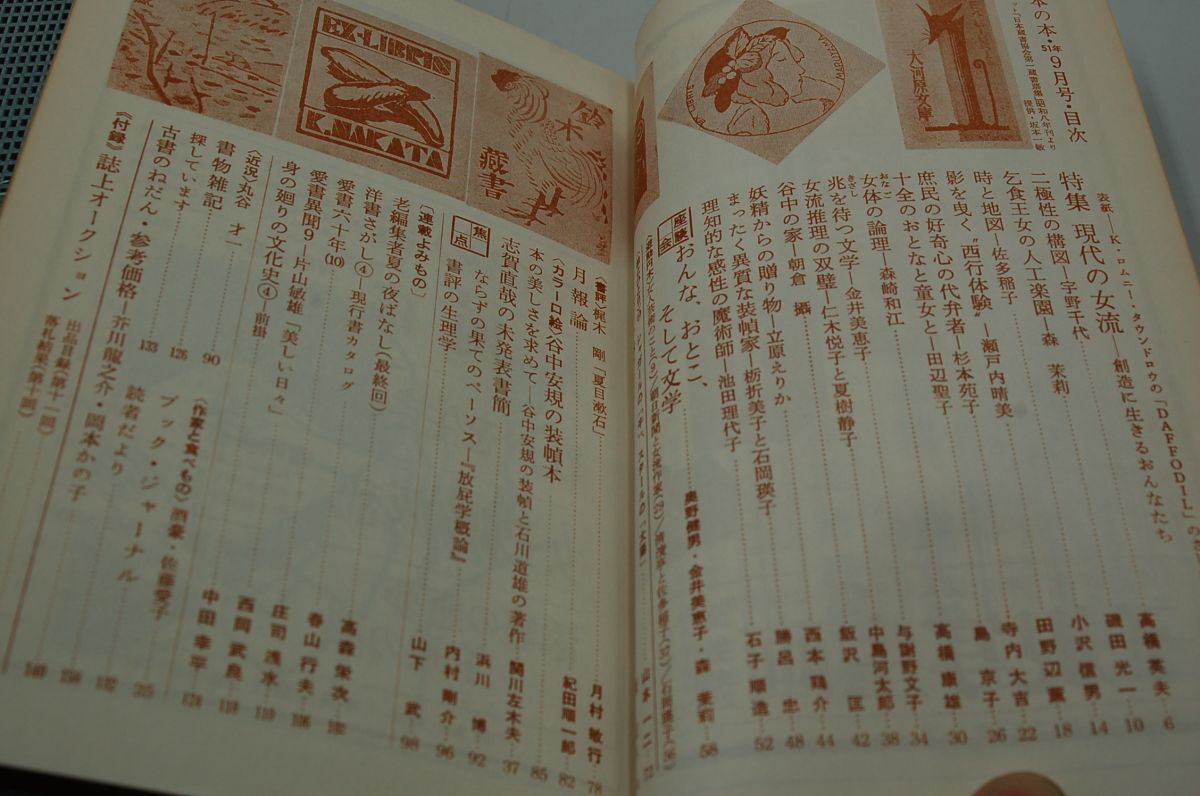 本の本・51年9月号・目次
特集 現代の女流―創造に生きるおんなたち……高橋英夫…6
二極性の構図―宇野千代……磯田光一…10
乞食王女の人工楽園―森 茉莉……小沢信男…14
時と地図―佐多稲子……田野辺薫…18
影を曳く〝西行体験〟―瀬戸内晴美……寺内大吉…22
庶民の好奇心の代弁者―杉本苑子……島 京子…26
十全のおとなと童女と―田辺聖子……高橋康雄…30
女体の論理―森崎和江……与謝野文子…34
兆を待つ文学―金井美恵子……中島河太郎…38
女流推理の双璧―仁木悦子と夏樹静子……飯沢 匡…42
谷中の家―朝倉 摂……西本鶏介…44
妖精からの贈り物―立原えりか……勝呂 忠…48
まったく異質な装幀家―栃折美子と石岡瑛子……石子順造…52
理知的な感性の魔術師―池田理代子
座談会 おんな、おとこ、そして文学……奥野健男・金井美恵子・森 茉莉…58
山本一二…72
〈書評〉梶木 剛「夏目漱石」……月村敏行…78
月報論……紀田順一郎…82
〈カラー口絵〉谷中安規の装幀本…85
本の美しさを求めて―谷中安規の装幀と石川道雄の著作……関川左木夫…37
志賀直哉の未発表書簡……浜川 博…92
焦点
ならずの果てのペーソス―『放屁学概論』……内村剛介…96
書評の生理学……山下 武…98
〔連載よみもの〕
老編集者夏の夜ばなし(最終回)……高森栄次…102
洋書さがし④―現行書カタログ……春山行夫…106
愛書六十年(10)……庄司浅水…110
愛書異聞9―片山敏雄「美しい日々」……西岡武良…114
身の廻りの文化史④―前掛……中田幸平…124
〈近況〉丸谷 才一…90
〈作家と食べもの〉酒豪・佐藤愛子…215
書物雑記…126
ブック・ジャーナル…132
探しています…133
読者だより…156
古書のねだん・参考価格―芥川龍之介・岡本かの子…140
《付録》誌上オークション
出品目録(第十一回)
落札結果(第十回)
EX-LIBRIS
K. NAKATA
鈴木蔵書
大河原文庫